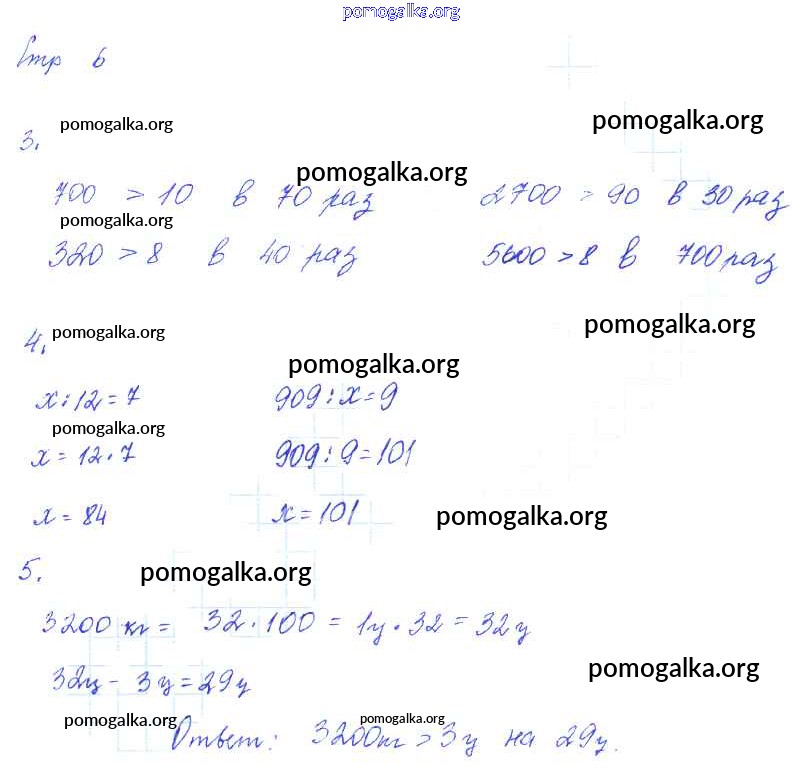 pomogalka.org
Стр 6
pomogalka.org pomogalka.org
3.
pomogalka.org
700 > 10 в 70 раз 2700 > 90 в 30 раз
pomogalka.org
320 > 8 в 40 раз 5600 > 8 в 700 раз
pomogalka.org pomogalka.org
4.
pomogalka.org
x : 12 = 7 909 : x = 9
pomogalka.org
x = 12 · 7 909 : 9 = 101
x = 84 x = 101
pomogalka.org
5. pomogalka.org
3200 кг = 32 · 100 = 1ц · 32 = 32ц
pomogalka.org
32ц - 3ц = 29ц
pomogalka.org pomogalka.org
Ответ: 3200кг > 3ц на 29ц.